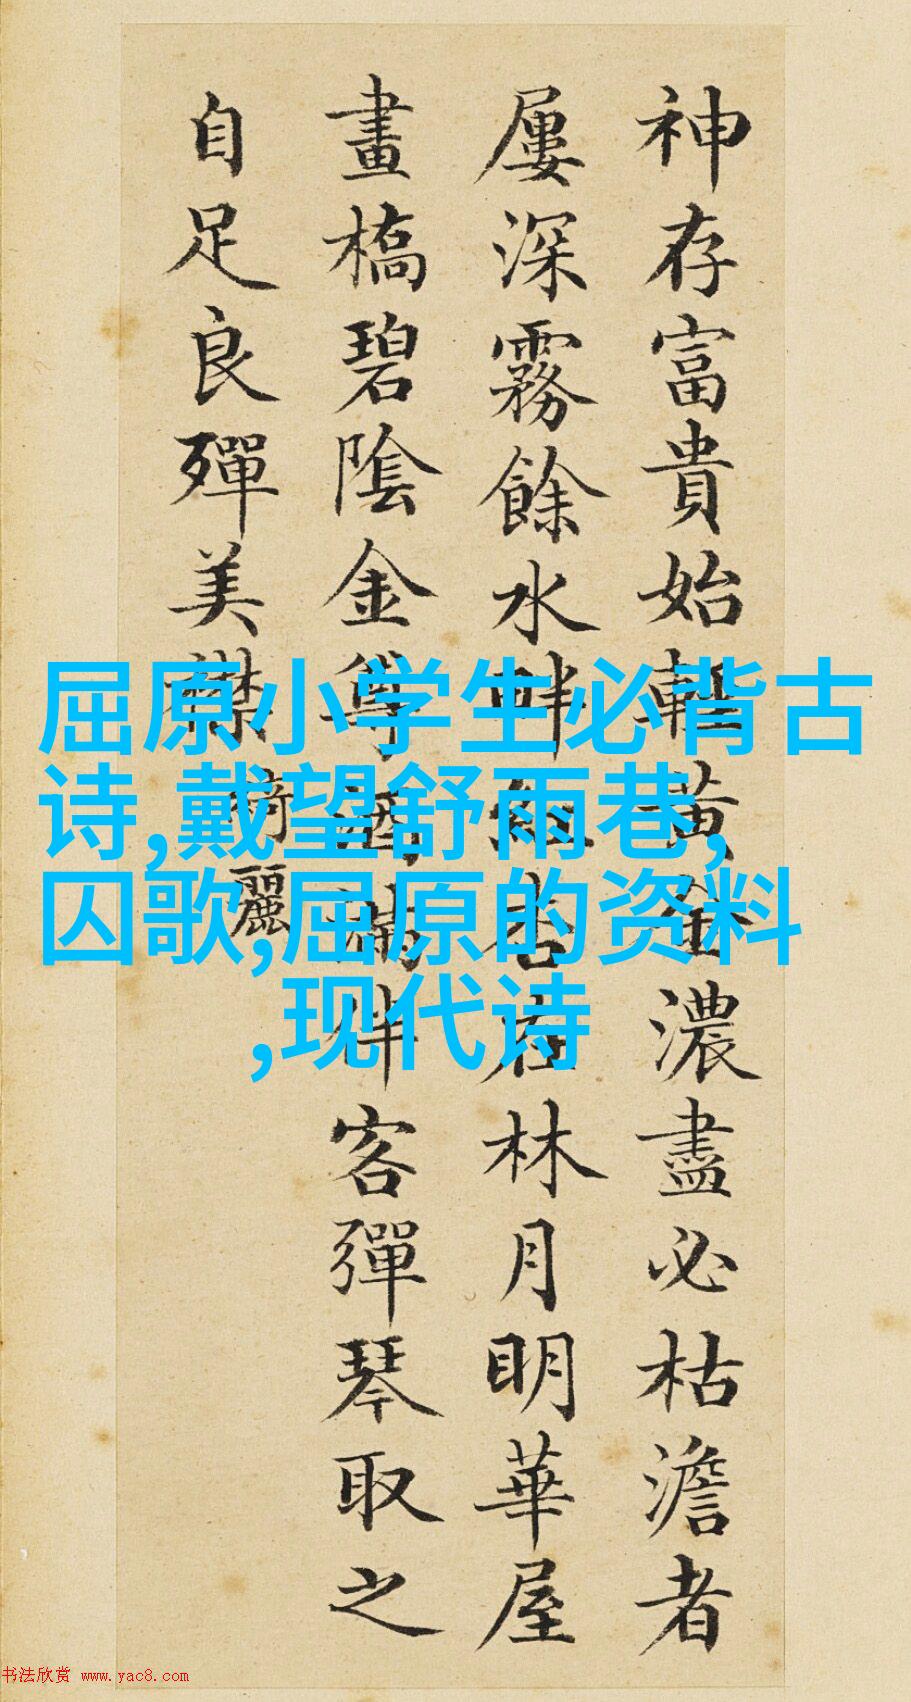 神存富貴始輕黃金濃盡必枯澹者
屢深霧餘水畔紅杏在林月明華屋
畫橋碧陰金尊酒滿伴客彈琴取之
自足良殫美襟
綺麗
屈原小学生必背古
诗,戴望舒雨巷,
囚歌,屈原的资料
,现代诗
书法欣赏 www.yac8.com